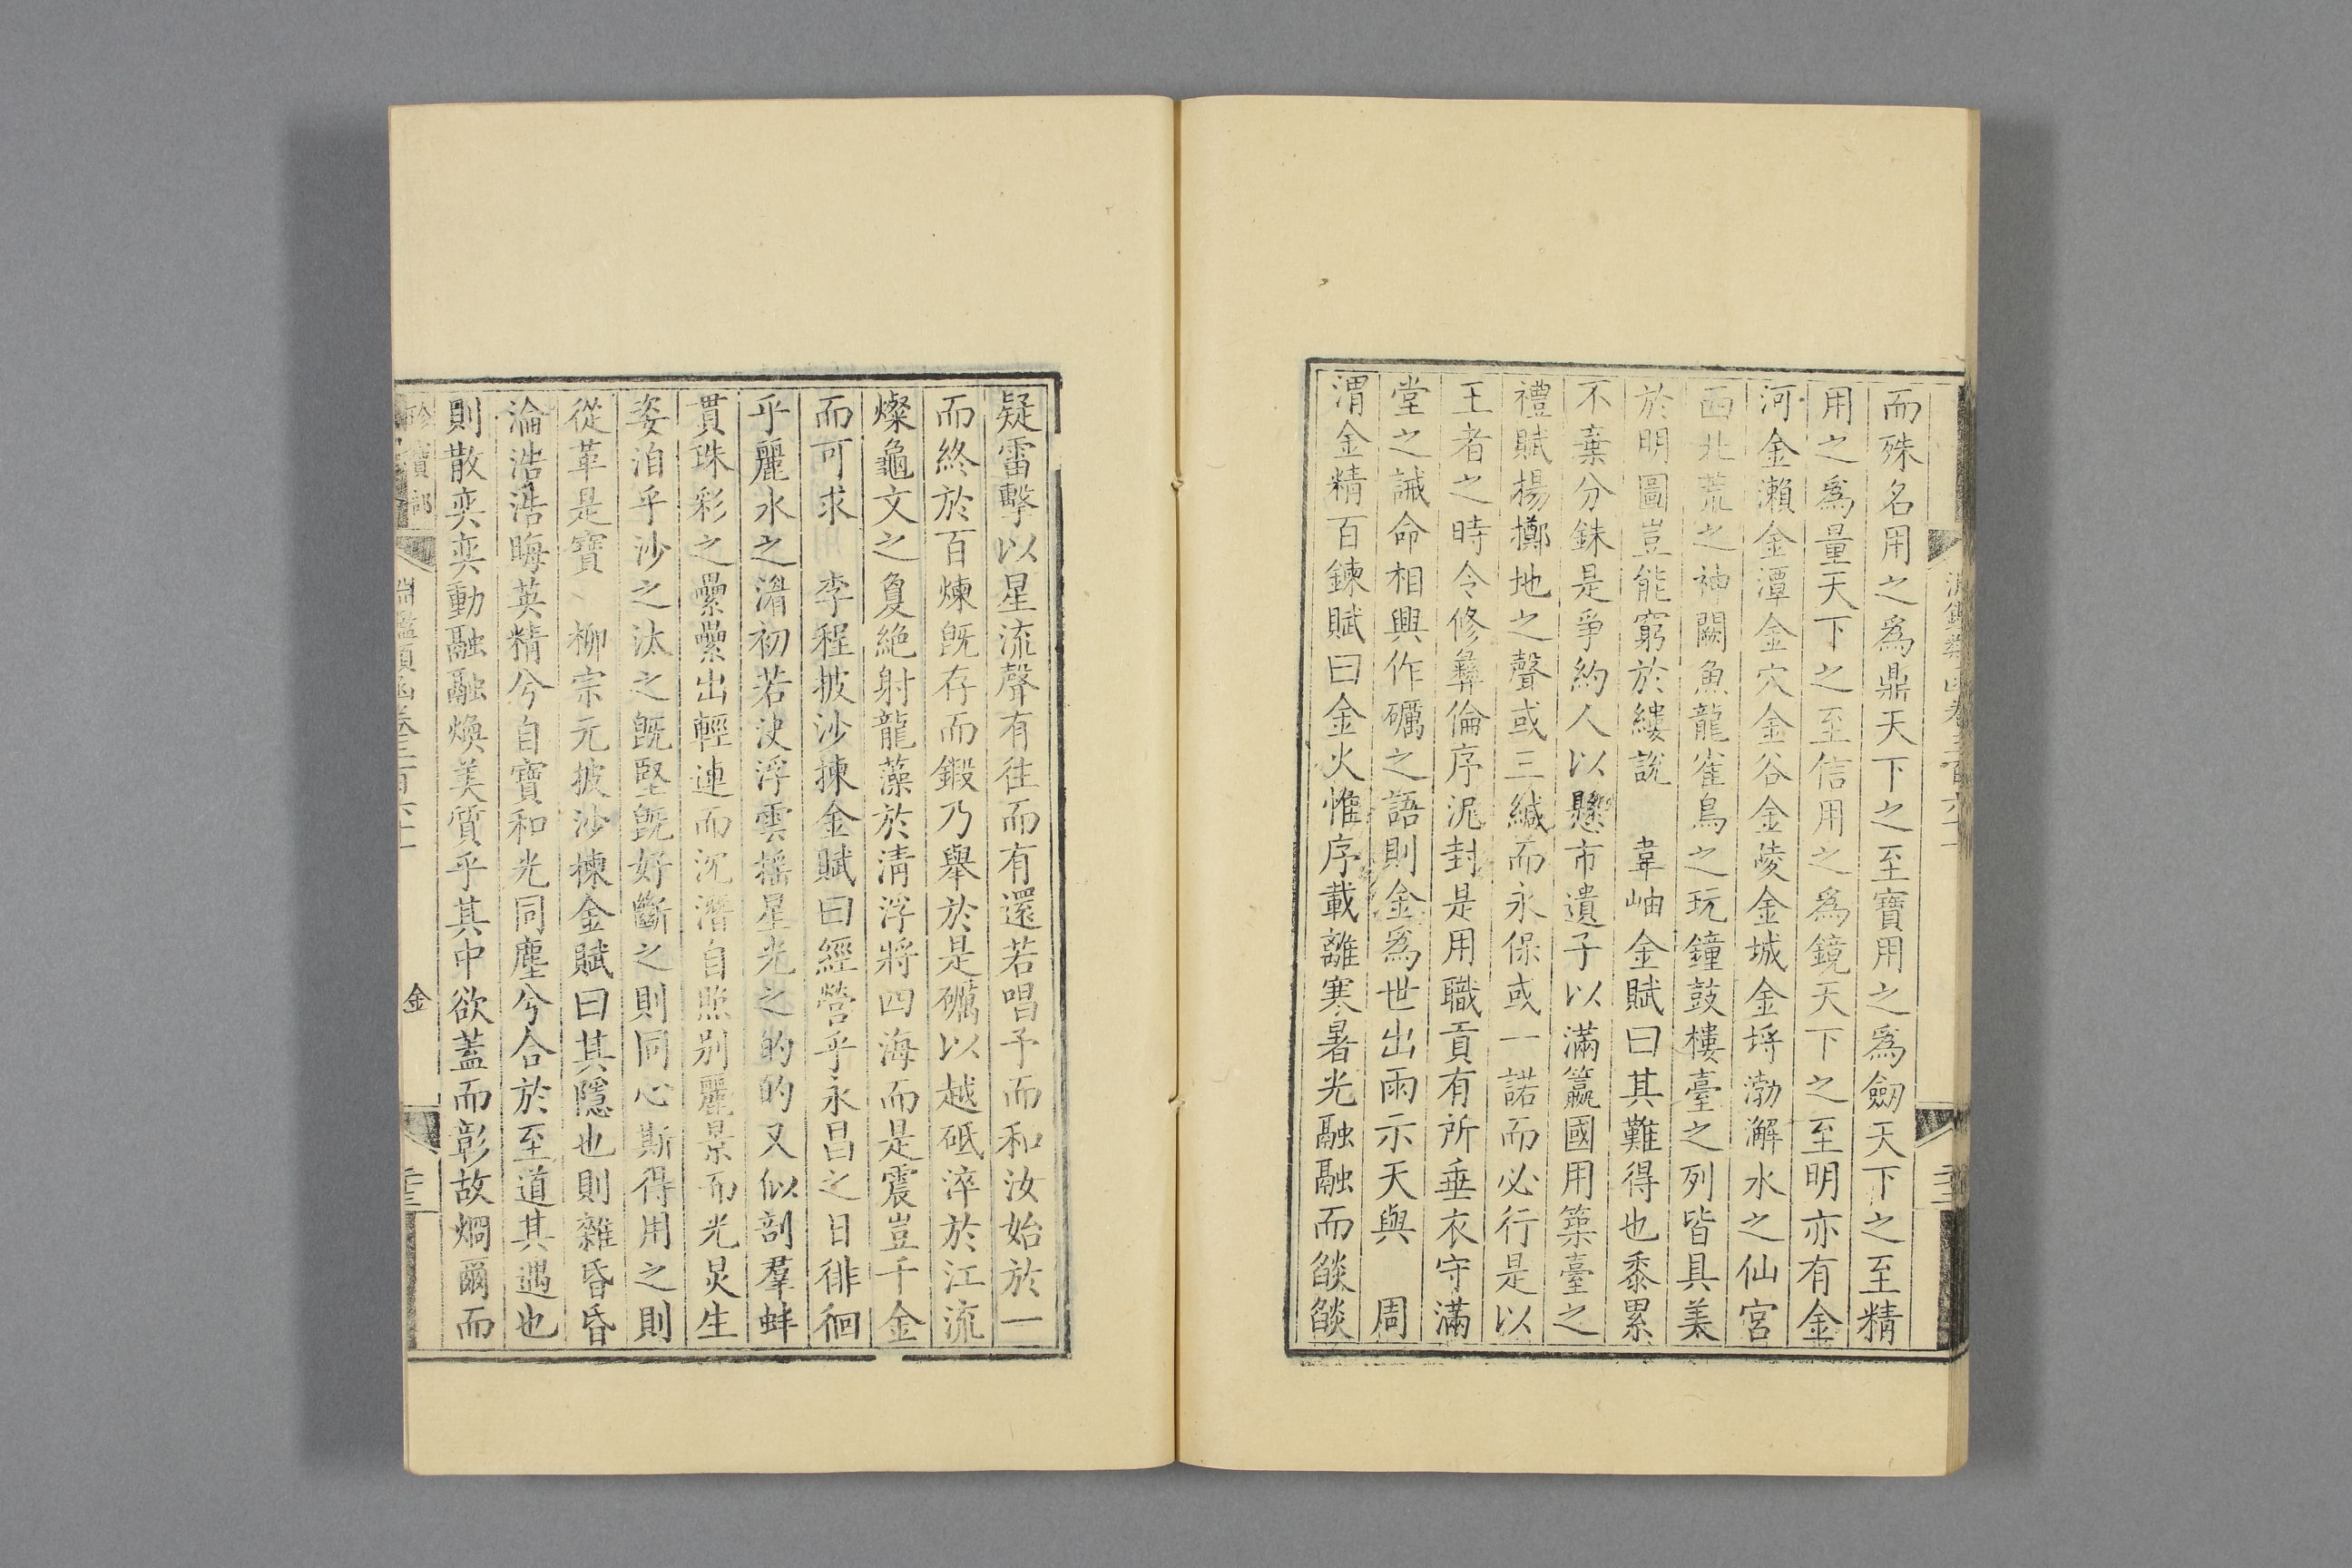 而殊名用之爲鼎天下之至寶用之爲劒天下之至精
用之爲量天下之至信用之爲鏡天下之至明亦有金
河金瀨金潭金穴金谷金崚金城金埒渤澥水之仙宮
西北荒之神闕魚龍雀鳥之玩鐘鼓樓臺之列皆具美
於明圖豈能窮於縷說 韋岫金賦曰其難得也黍累
不棄分銖是爭約人以懸市遺子以滿籯國用築臺之
禮賦揚擲地之聲或三緘而永保或一諾而必行是以
王者之時令修彝倫序泥封是用職貢有所垂衣守滿
堂之誡命相興作礪之語則金爲世出雨示天與 周
渭金精百鍊賦曰金火惟序載離寒暑光融融而燄燄
疑雷擊以星流聲有往而有還若唱予而和汝始於一
而終於百煉旣存而鍛乃舉於是礪以越砥淬於江流
燦龜文之敻絶射龍藻於淸浮將四海而是震豈千金
而可求 李程披沙揀金賦曰經營乎永昌之日徘徊
乎麗水之潃初若浃浮雲搖星光之的的又似剖羣蚌
貫珠彩之纍纍出輕連而沉潛自照别麗景而光炅生
姿洎乎沙之汰之旣堅旣好斷之則同心斯得用之則
從革是寶 柳宗元披沙揀金賦曰其隱也則雜昏昏
淪浩浩晦英精兮自寶和光同塵兮合於至道其遇也
則散奕奕動融融煥美質乎其中欲蓋而彰故烱爾而
珍寶部 淵鑑類函卷三百六十一 金 二十三